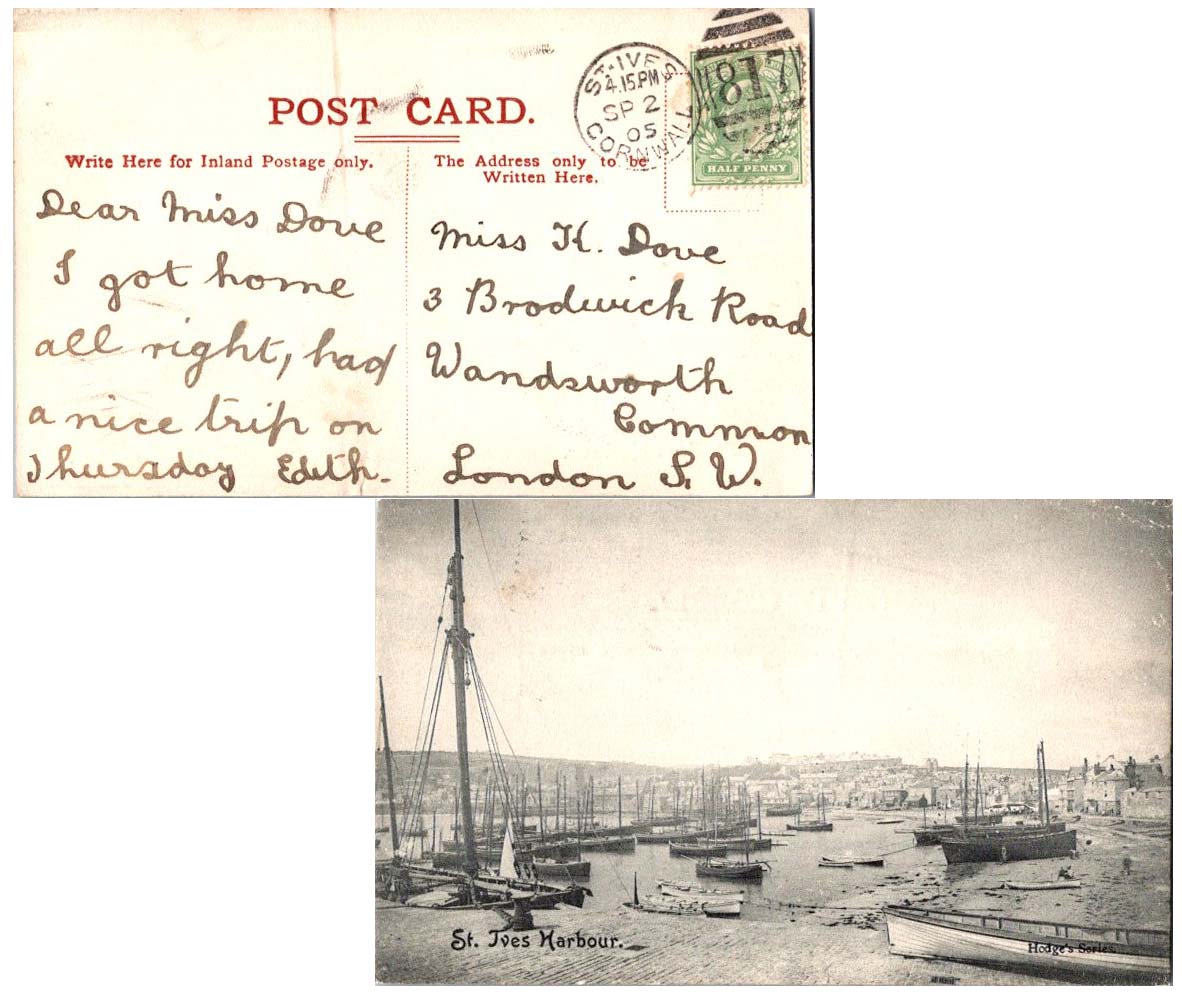 POST CARD.
Write Here for Inland Postage only.
The Address only to be
Written Here.
ST. IVES
4.15.PM
SP 2
05
CORNWALL
817
HALF PENNY
Dear Miss Dove
I got home
all right, had
a nice trip on
Thursday Edith.
Miss K. Dove
3 Brodwick Road
Wandsworth
Common
London S. W.
St. Ives Harbour.
Hodge's Series.